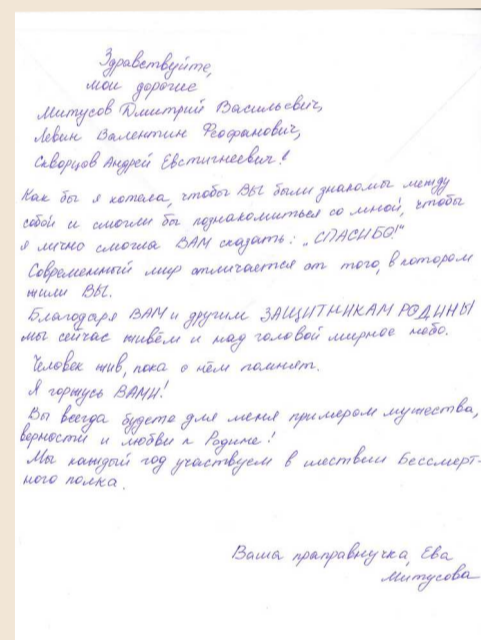 Здравствуйте,
мои дорогие
Митусов Дмитрий Васильевич,
Левин Валентин Феофанович,
Скворцов Андрей Евстигнеевич!
Как бы я хотела, чтобы ВЫ были знакомы между
собой и смогли бы познакомиться со мной, чтобы
я лично смогла ВАМ сказать: „СПАСИБО!"
Современный мир отличается от того, в котором
жили ВЫ.
Благодаря ВАМ и другим ЗАЩИТНИКАМ РОДИНЫ
мы сейчас живём и над головой мирное небо.
Человек жив, пока о нём помнят.
Я горжусь ВАМИ!
Вы всегда будете для меня примером мужества,
верности и любви к Родине!
Мы каждый год участвуем в шествии Бессмерт-
ного полка.
Ваша праправнучка, Ева
Митусова